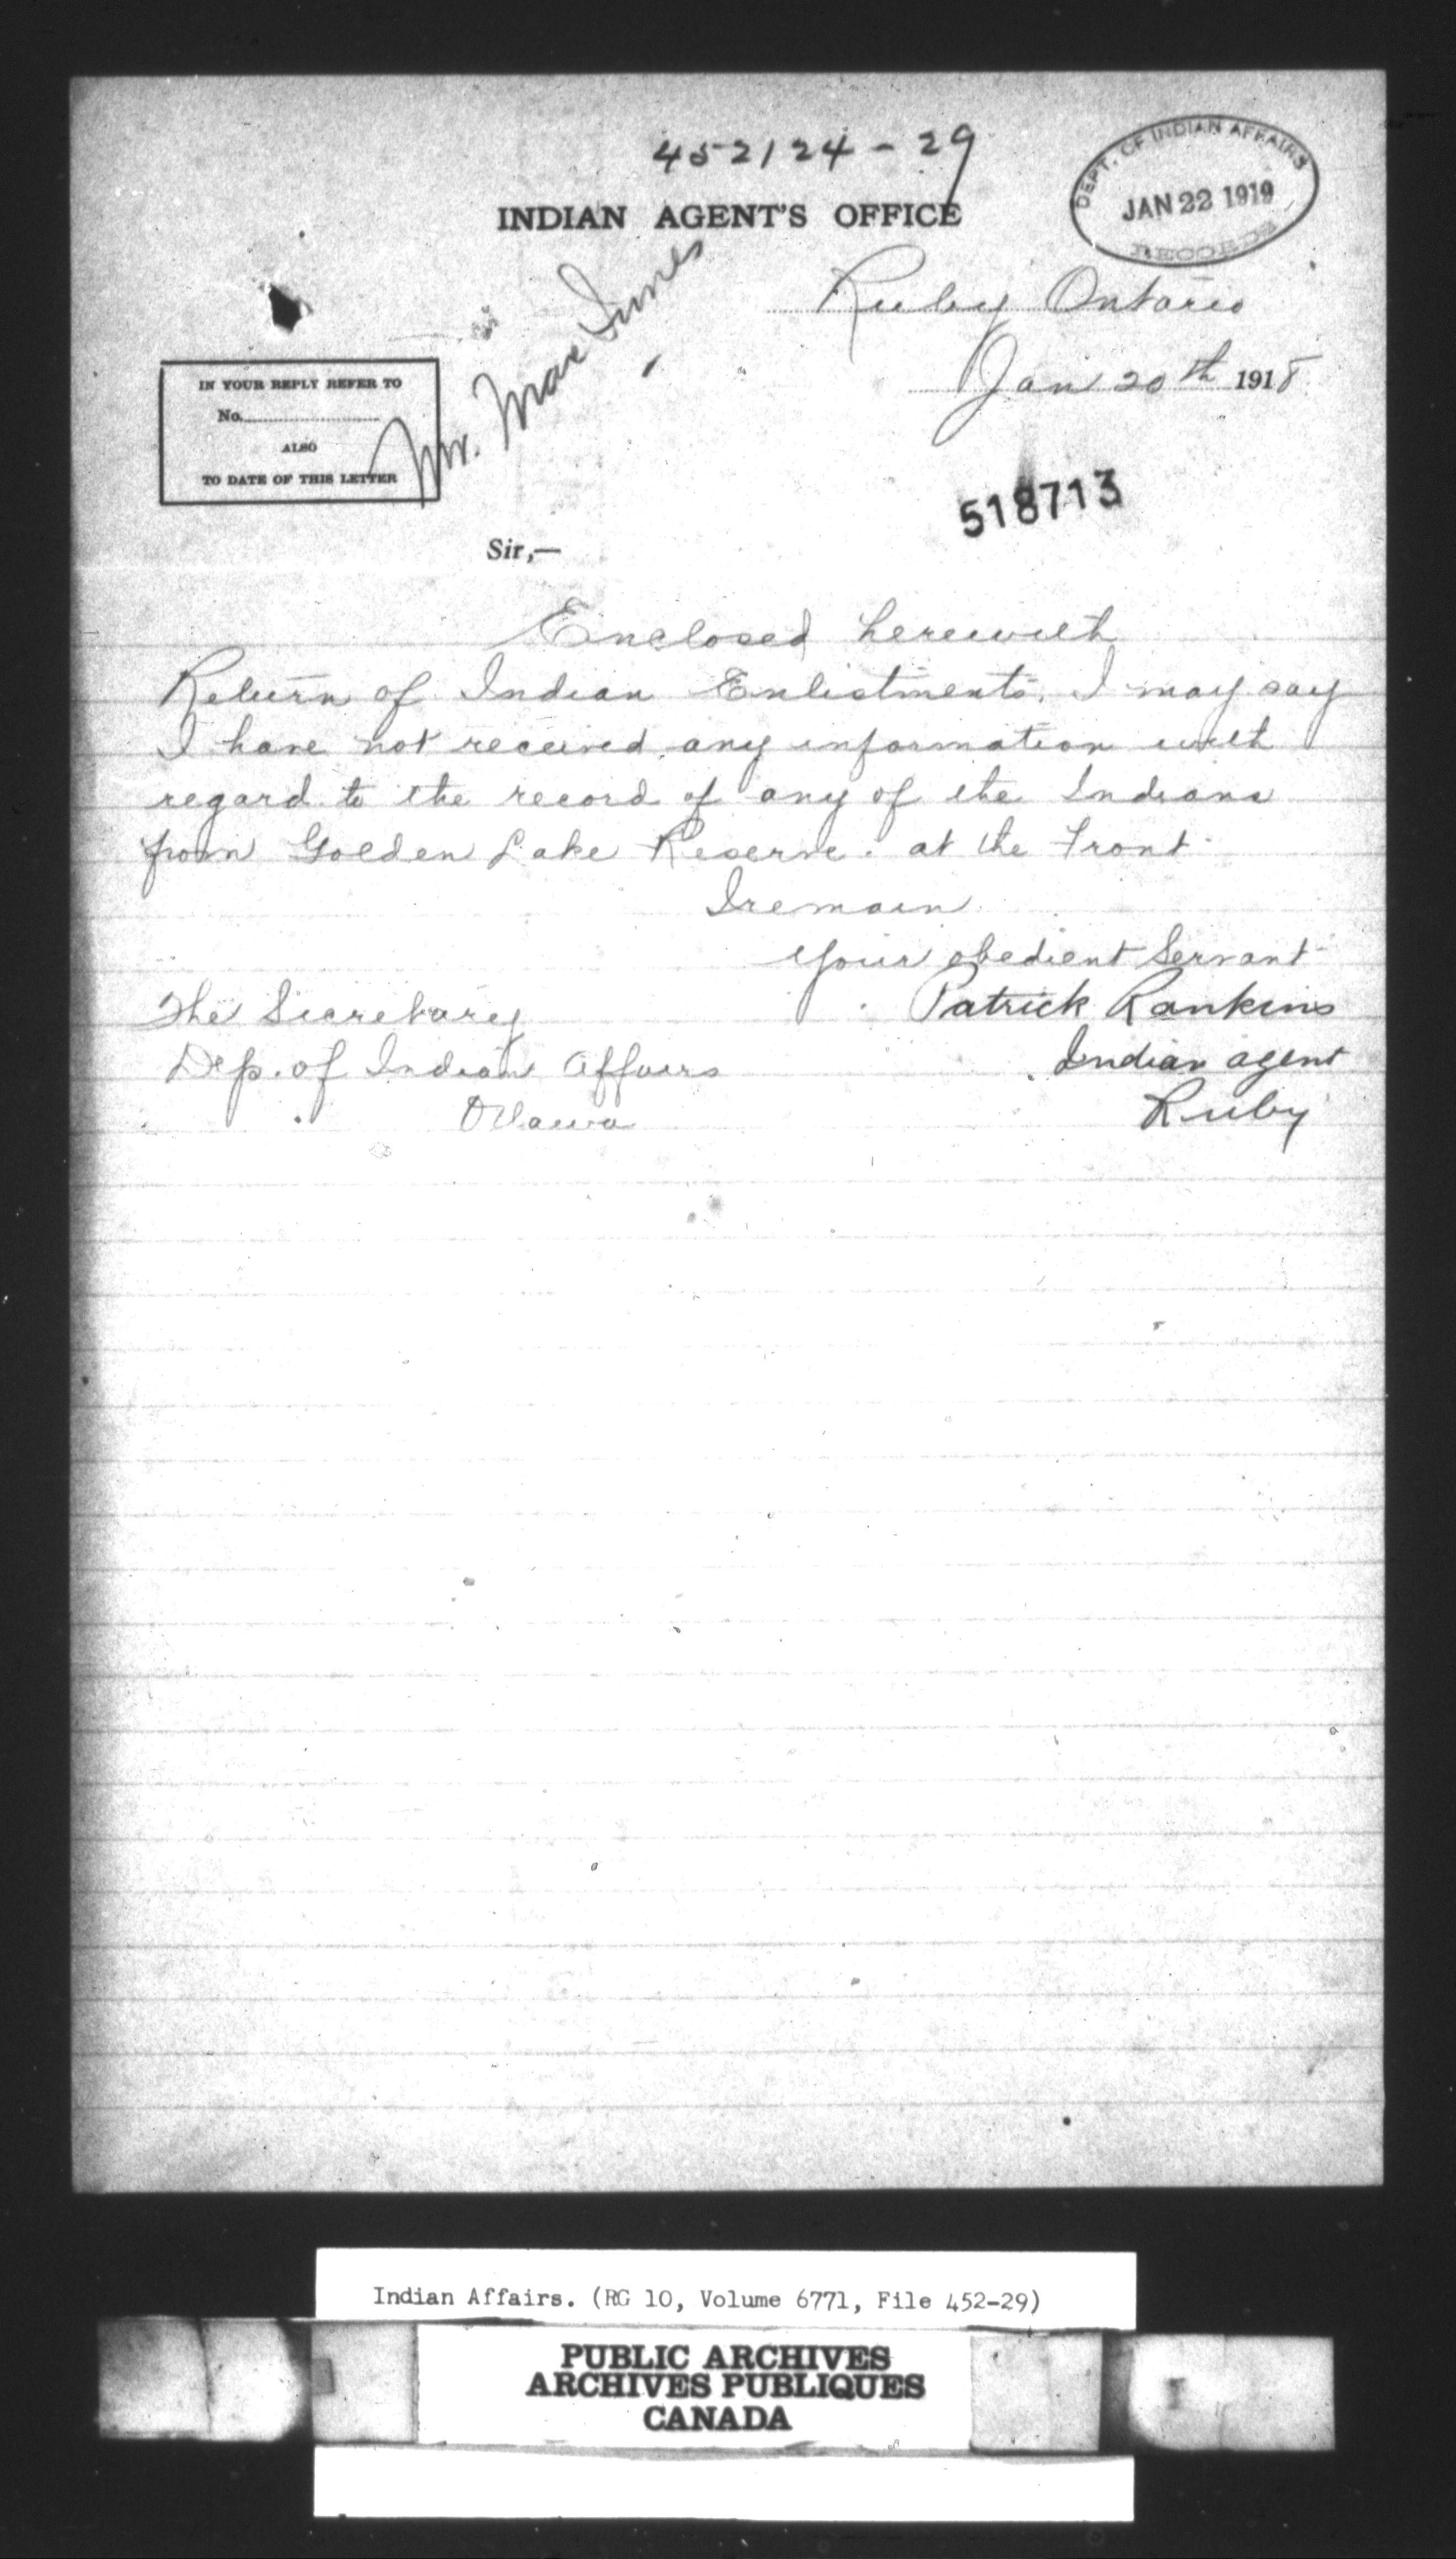 452124-29
INDIAN AGENT'S OFFICE
DEPT. OF INDIAN AFFAIRS
JAN 22 1919
RECORDS
Ruby Ontario
Jan 20th 1918
Mr. MacInnes
IN YOUR REPLY REFER TO
No.
ALSO
TO DATE OF THIS LETTER
518713
Sir,—
Enclosed herewith
Return of Indian Enlistments. I may say
I have not received any information with
regard to the record of any of the Indians
from Golden Lake Reserve. at the Front
I remain
your obedient Servant
Patrick Rankins
Indian agent
Ruby
The Secretary
Dep. of Indian Affairs
Ottawa
Indian Affairs. (RG 10, Volume 6771, File 452-29)
PUBLIC ARCHIVES
ARCHIVES PUBLIQUES
CANADA